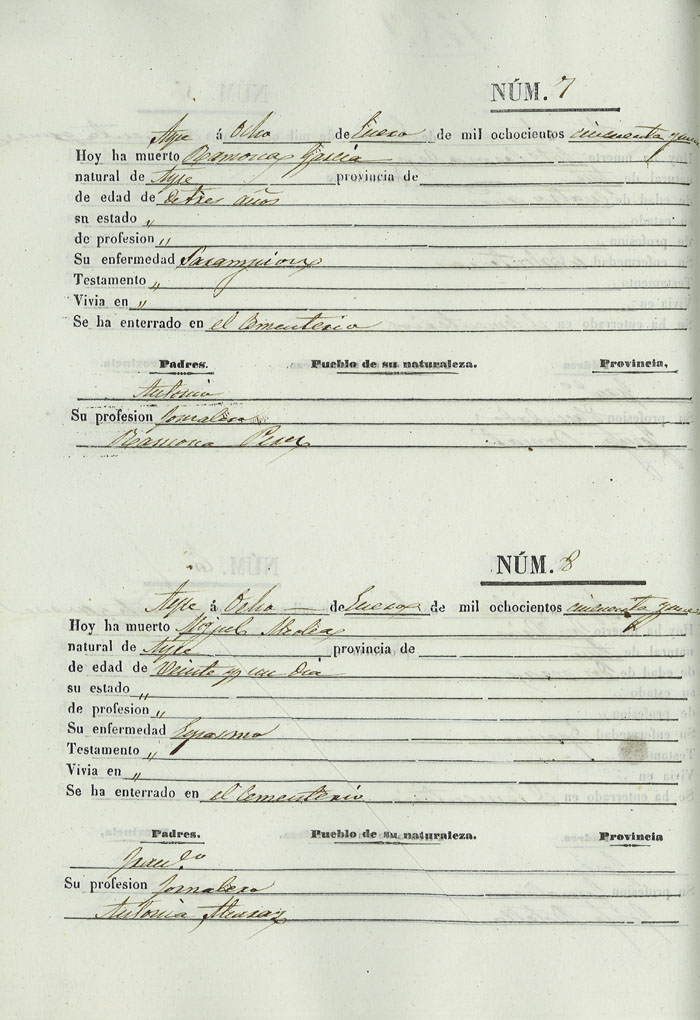 NÚM. 7
Aspe á Ocho de Enero de mil ochocientos cincuenta y
Hoy ha muerto Ramona Garcia
natural de Aspe provincia de
de edad de de tres años
sn estado "
de profesion "
Su enfermedad Sarampion
Testamento "
Vivia en "
Se ha enterrado en el Cementerio
Padres. Pueblo de su naturaleza. Provincia,
Antonio
Su profesion Jornalero
Ramona Perez
NÚM. 8
Aspe á Ocho de Enero de mil ochocientos cincuenta y
Hoy ha muerto Miguel
natural de Aspe provincia de
de edad de Veinte y un dia
su estado "
de profesion "
Su enfermedad Espasmo
Testamento "
Vivia en "
Se ha enterrado en el Cementerio
Padres. Pueblo de su naturaleza. Provincia
Su profesion Jornalero
Antonia